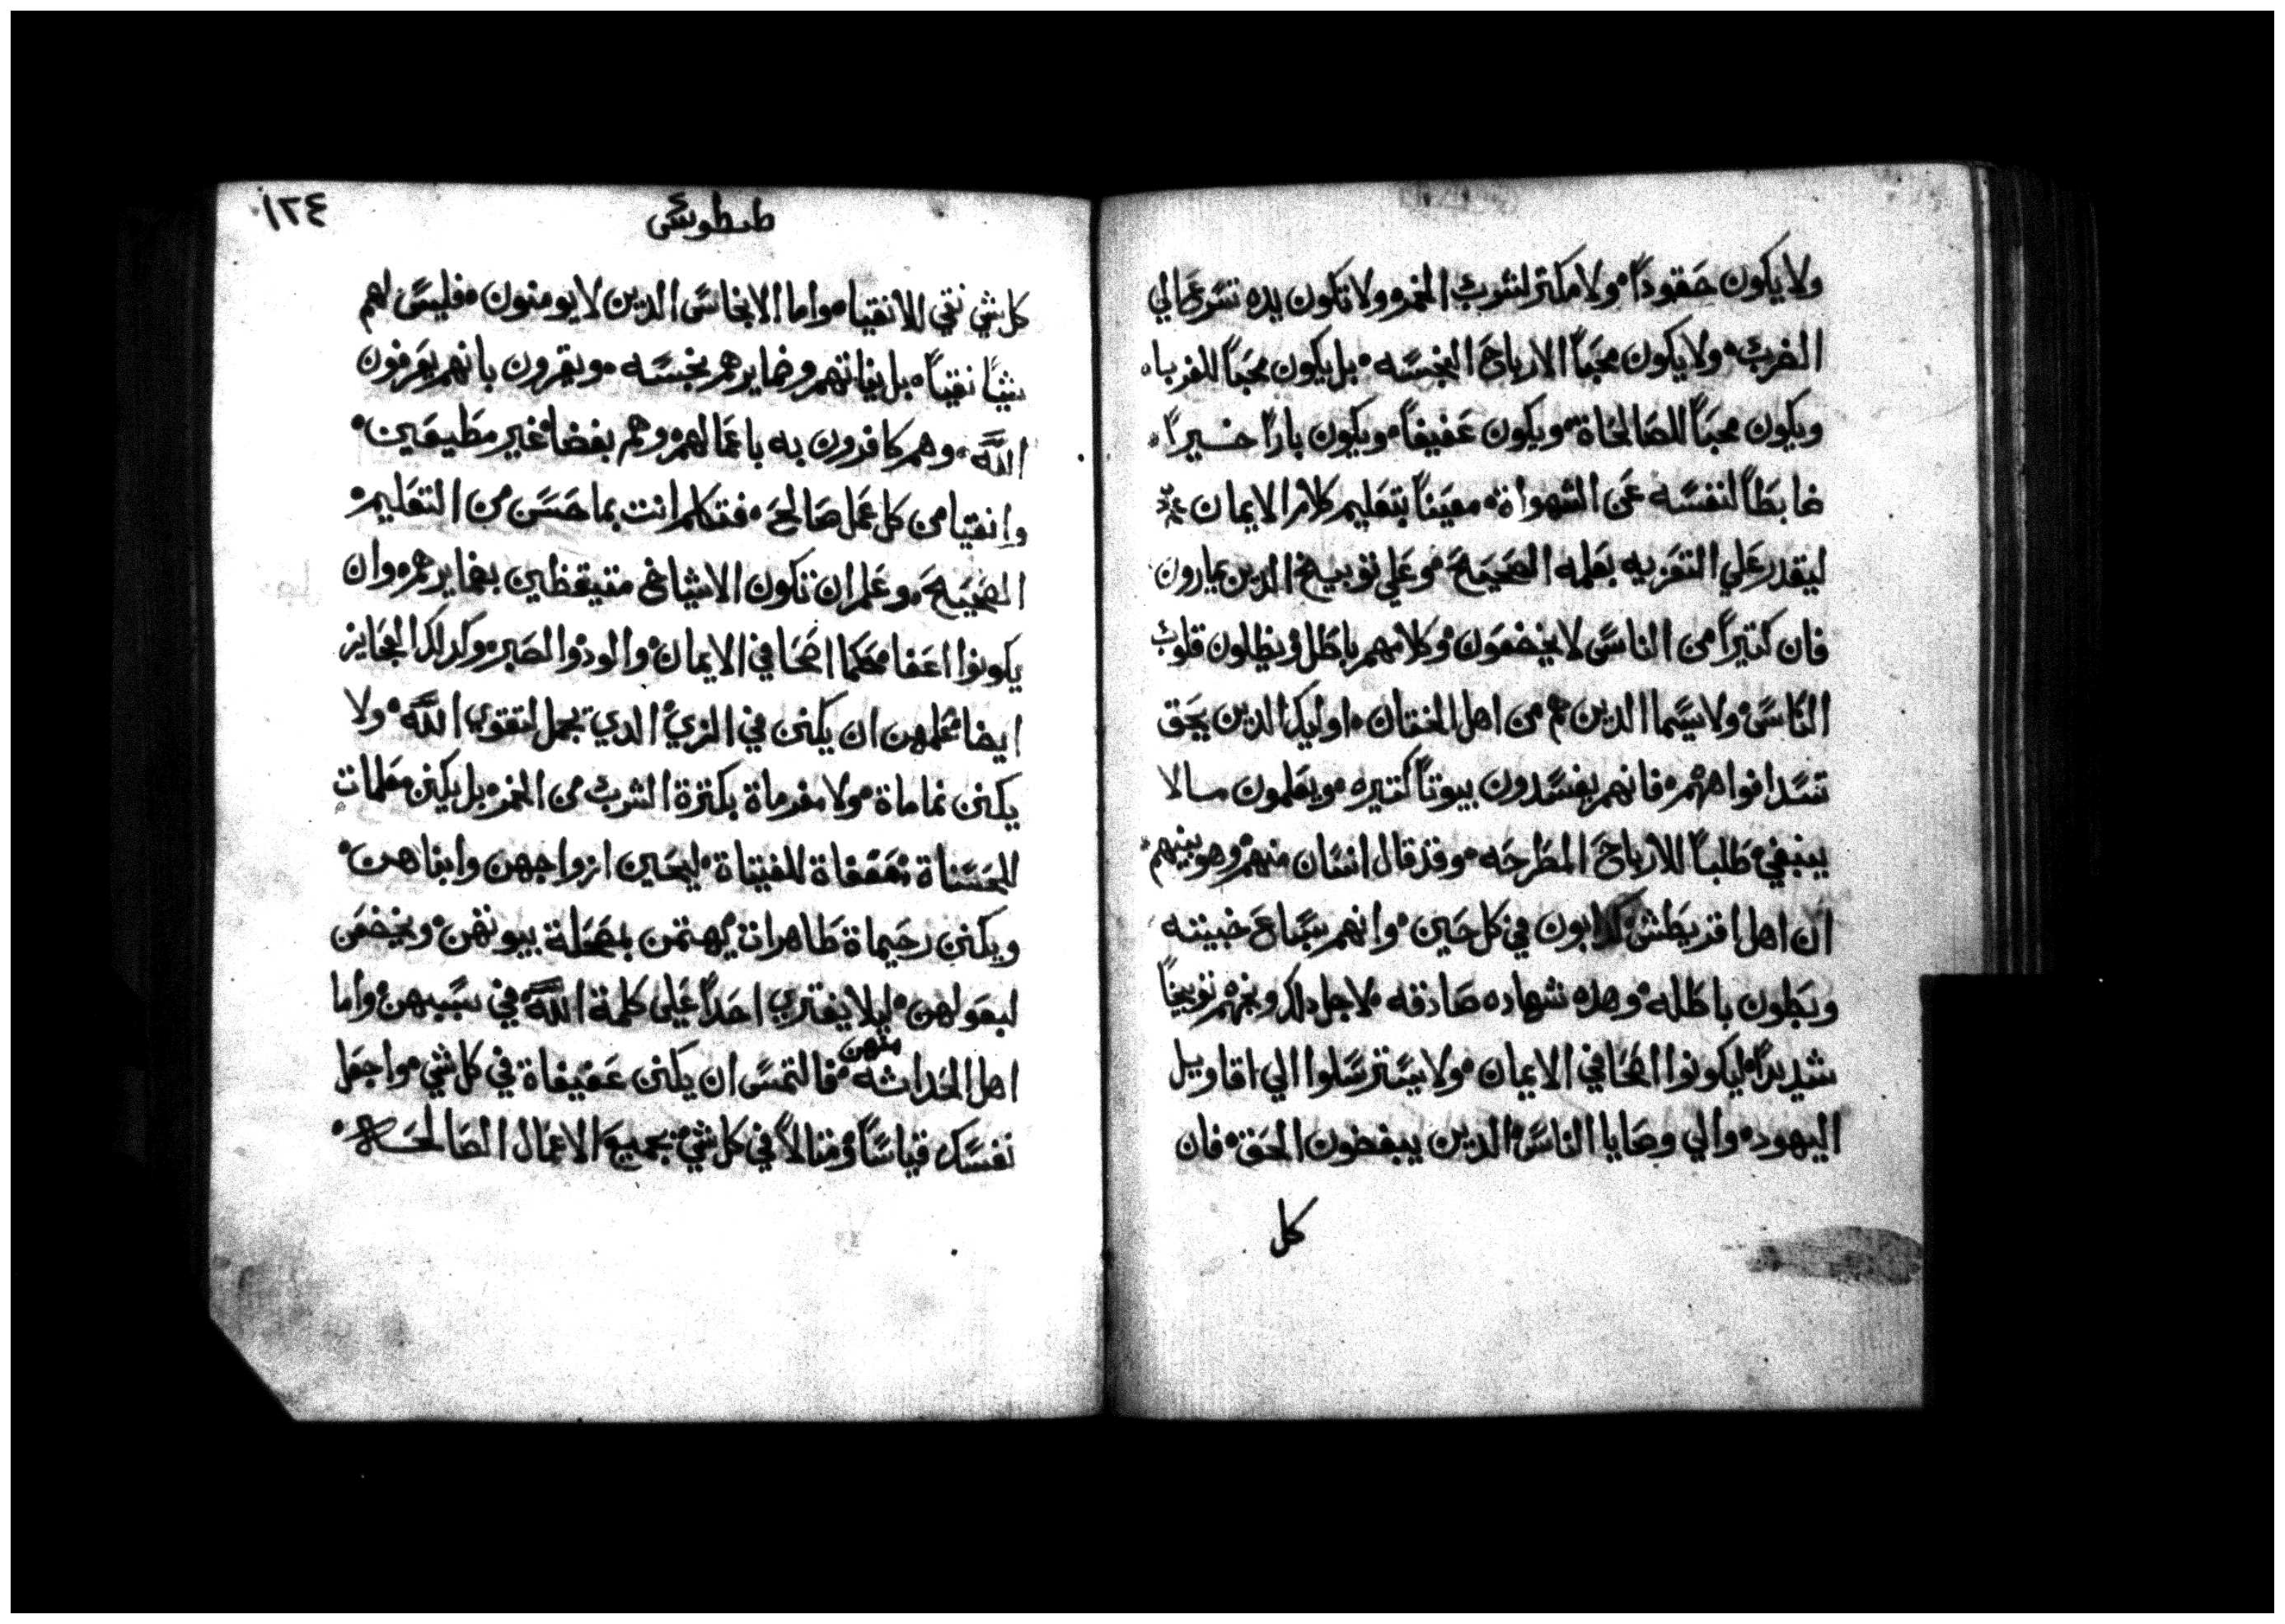 ولايكون حقوداً ولا مكثر لشرب الخمر ولا تكون يده تسرع الي
الضرب ولا يكون محباً الارباح النجسه بل يكون محباً للغرباء
ويكون محباً للصالحاة ويكون عفيفاً ويكون باراً خيراً
ضابطاً لنفسه عن الشهواة معيناً بتعليم كلام الايمان
ليقدر علي التعزيه بعلمه الصحيحة وعلي توبيخ الدين يمارون
فان كتيراً من الناس لا يخضعون وكلامهم باطل ويظلون قلوب
الناس ولا سيما الدين هم من اهل الختان اوليك الدين يحق
تسد افواههم فانهم يفسدون بيوتاً كتيره ويعلمون مالا
ينبغي طلباً للارباح المطرحه وقد قال انسان منهم وهو بينهم
ان اهل اقريطش كدابون في كل حين وانهم سباع خبيته
وبطون باطله وهده شهاده صادقه لاجل دلك وبخهم توبيخاً
شديداً ليكونوا اصحا في الايمان ولا يسترسلوا الي اقاويل
اليهود والي وصايا الناس الدين يبغضون الحق فان
كل
١٢٤
طيطوس
كل شي نقي للانقيا واما الانجاس الدين لا يومنون فليس لهم
شياً نقياً بل نياتهم وضمايرهم نجسه ويقرون بانهم يعرفون
الله وهم كافرون به باعمالهم وهم بغضا غير مطيعين
وانقيا من كل عمل صالح فتكلم انت بما حسن من التعليم
الصحيح وعلم ان تكون الاشياخ متيقظين بضمايرهم وان
يكونوا اعفا حكما اصحا في الايمان والود والصبر وكدلك العجايز
ايضا علمهن ان يكنن في الزي الدي يجمل لتقوي الله ولا
يكنن نماماة ولا مغرماة بكترة الشرب من الخمر بل يكنن معلمات
للحسناة معففاة للفتياة ليحبين ازواجهن وابناهن
ويكنن رحيماة طاهرات يهتمن بمصحلة بيوتهن ويخضعن
لبعولهن ليلا يفتري احداً علي كلمة الله في سببهن واما
اهل الحداثه منهن فالتمس ان يكنن عفيفاة في كل شي واجعل
نفسك قياساً ومتالاً في كل شي بجميع الاعمال الصالحه